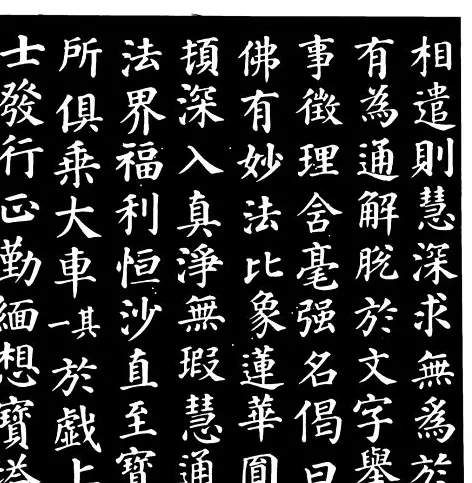 相遣則慧深求無爲於
有為通解脫於文字舉
事徵理含毫强名偈曰
佛有妙法比象蓮華圓
頓深入真淨無瑕慧通
法界福利恒沙直至寶
所俱乘大車其一於戲上
士發行正勤緬想寶塔